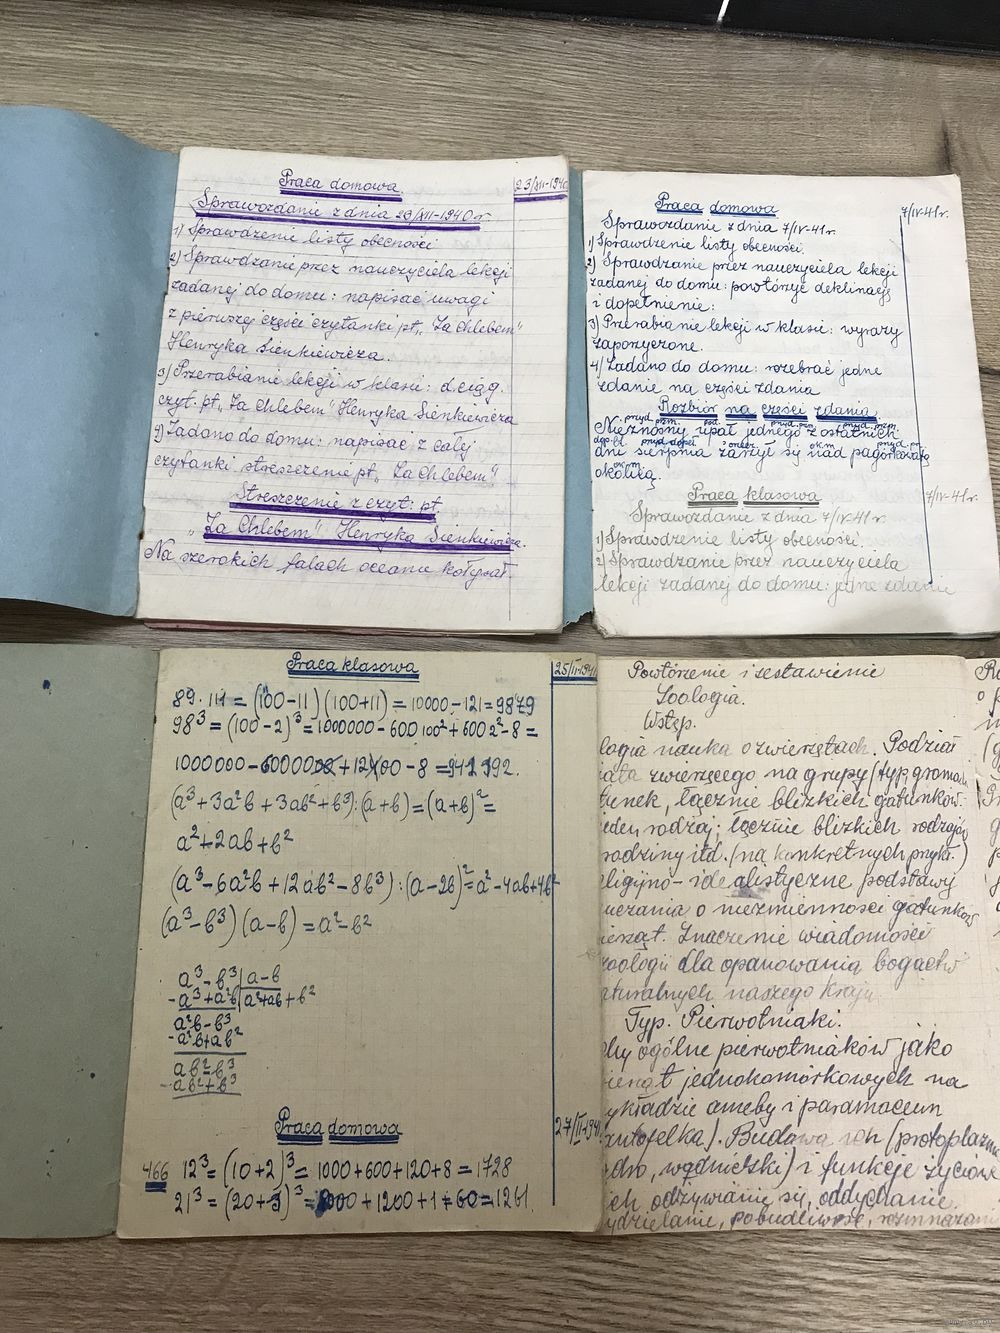 Praca domowa.
23/XII-1940
Sprawozdanie z dnia 23/XII-1940 r
1) Sprawdzenie listy obecności
2) Sprawdzanie przez nauczyciela lekcji
zadanej do domu: napisać uwagi
z pierwszej części czytanki pt. "Za Chlebem"
Henryka Sienkiewicza.
3) Przerabianie lekcji w klasie: d. ciąg.
czyt. pt. "Za Chlebem" Henryka Sienkiewicza
4) Zadano do domu: napisać z całej
czytanki streszczenie pt. "Za Chlebem"
Streszczenie z czyt: pt.
"Za Chlebem" Henryka Sienkiewicza.
Na szerokich falach oceanu kołysał
Praca domowa
7/IV-41 r.
Sprawozdanie z dnia 7/IV-41 r.
1) Sprawdzenie listy obecności.
2) Sprawdzanie przez nauczyciela lekcji
zadanej do domu: powtórzyć deklinację
i dopełnienie:
3) Przerabianie lekcji w klasie: wyrazy
zapożyczone.
4) Zadano do domu: rozebrać jedne
zdanie na części zdania
Rozbiór na części zdania.
Nieznośny upał jednego z ostatnich
dni sierpnia zawisł się nad pagórkowatą
okolicą.
Praca klasowa
7/IV-41 r.
Sprawozdanie z dnia 7/IV-41 r
1) Sprawdzenie listy obecności.
2) Sprawdzanie przez nauczyciela
lekcji zadanej do domu: jedne zdanie
Praca klasowa
25/II-1941
89 · 111 = (100-11)(100+11) = 10000-121 = 9879
98³ = (100-2)³ = 1000000 - 600 100² + 600 2² - 8 =
1000000 - 60000 + 1200 - 8 = 941192.
(a³+3a²b+3ab²+b³):(a+b) = (a+b)² =
a²+2ab+b²
(a³-6a²b+12ab²-8b³):(a-2b)² = a²-4ab+4b²
(a³-b³)(a-b) = a²-b²
a³-b³ | a-b
-a³+a²b | a²+ab+b²
a²b-b³
-a²b+ab²
ab²-b³
-ab²+b³
Praca domowa
27/II-1941
466 12³ = (10+2)³ = 1000+600+120+8 = 1728
21³ = (20+1)³ = 8000+1200+1+60 = 1261.
Powtórzenie i zestawienie
Zoologia.
Wstęp.
logia nauka o zwierzętach. Podział
ata zwierzęcego na grupy (typ, groma
unek, łącznie blizkich gatunków
jeden rodzaj; łącznie blizkich rodzajów
rodziny itd. (na konkretnych przykł.)
eligijno-idealistyczne podstawy
uczania o niezmienności gatunków
ierząt. Znaczenie wiadomości
zoologii dla opanowania bogactw
aturalnych naszego kraju
Typ. Pierwotniaki.
hy ogólne pierwotniaków jako
ierząt jednokomórkowych na
ykładzie ameby i paramaecum
antofelka). Budowa ich (protoplazma
dro, wodniczki) i funkcje życiowe
ich odżywianie się, oddychanie.
ydzielanie, pobudliwość, rozmnażani